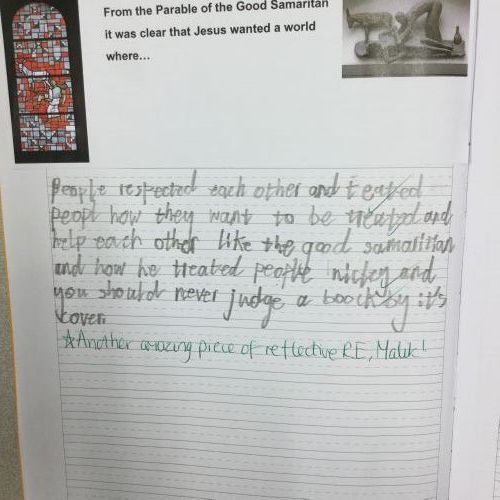 From the Parable of the Good Samaritan
it was clear that Jesus wanted a world
where...
People respected each other and treated
peopl how they want to be treated and
help each other like the good samaritan
and how he treated people nicley and
you should never judge a boock by it's
cover.
☆Another amazing piece of reflective RE, Malik!